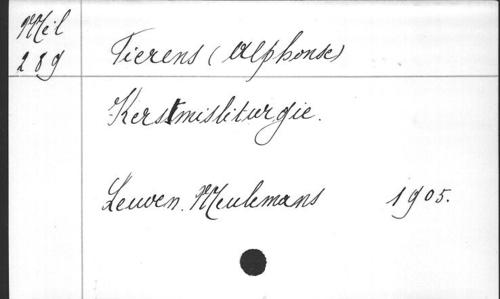 Mel
289
Tierens (Alphonse)
Kerstmisliturgie.
Leuven. Meulemans 1905.